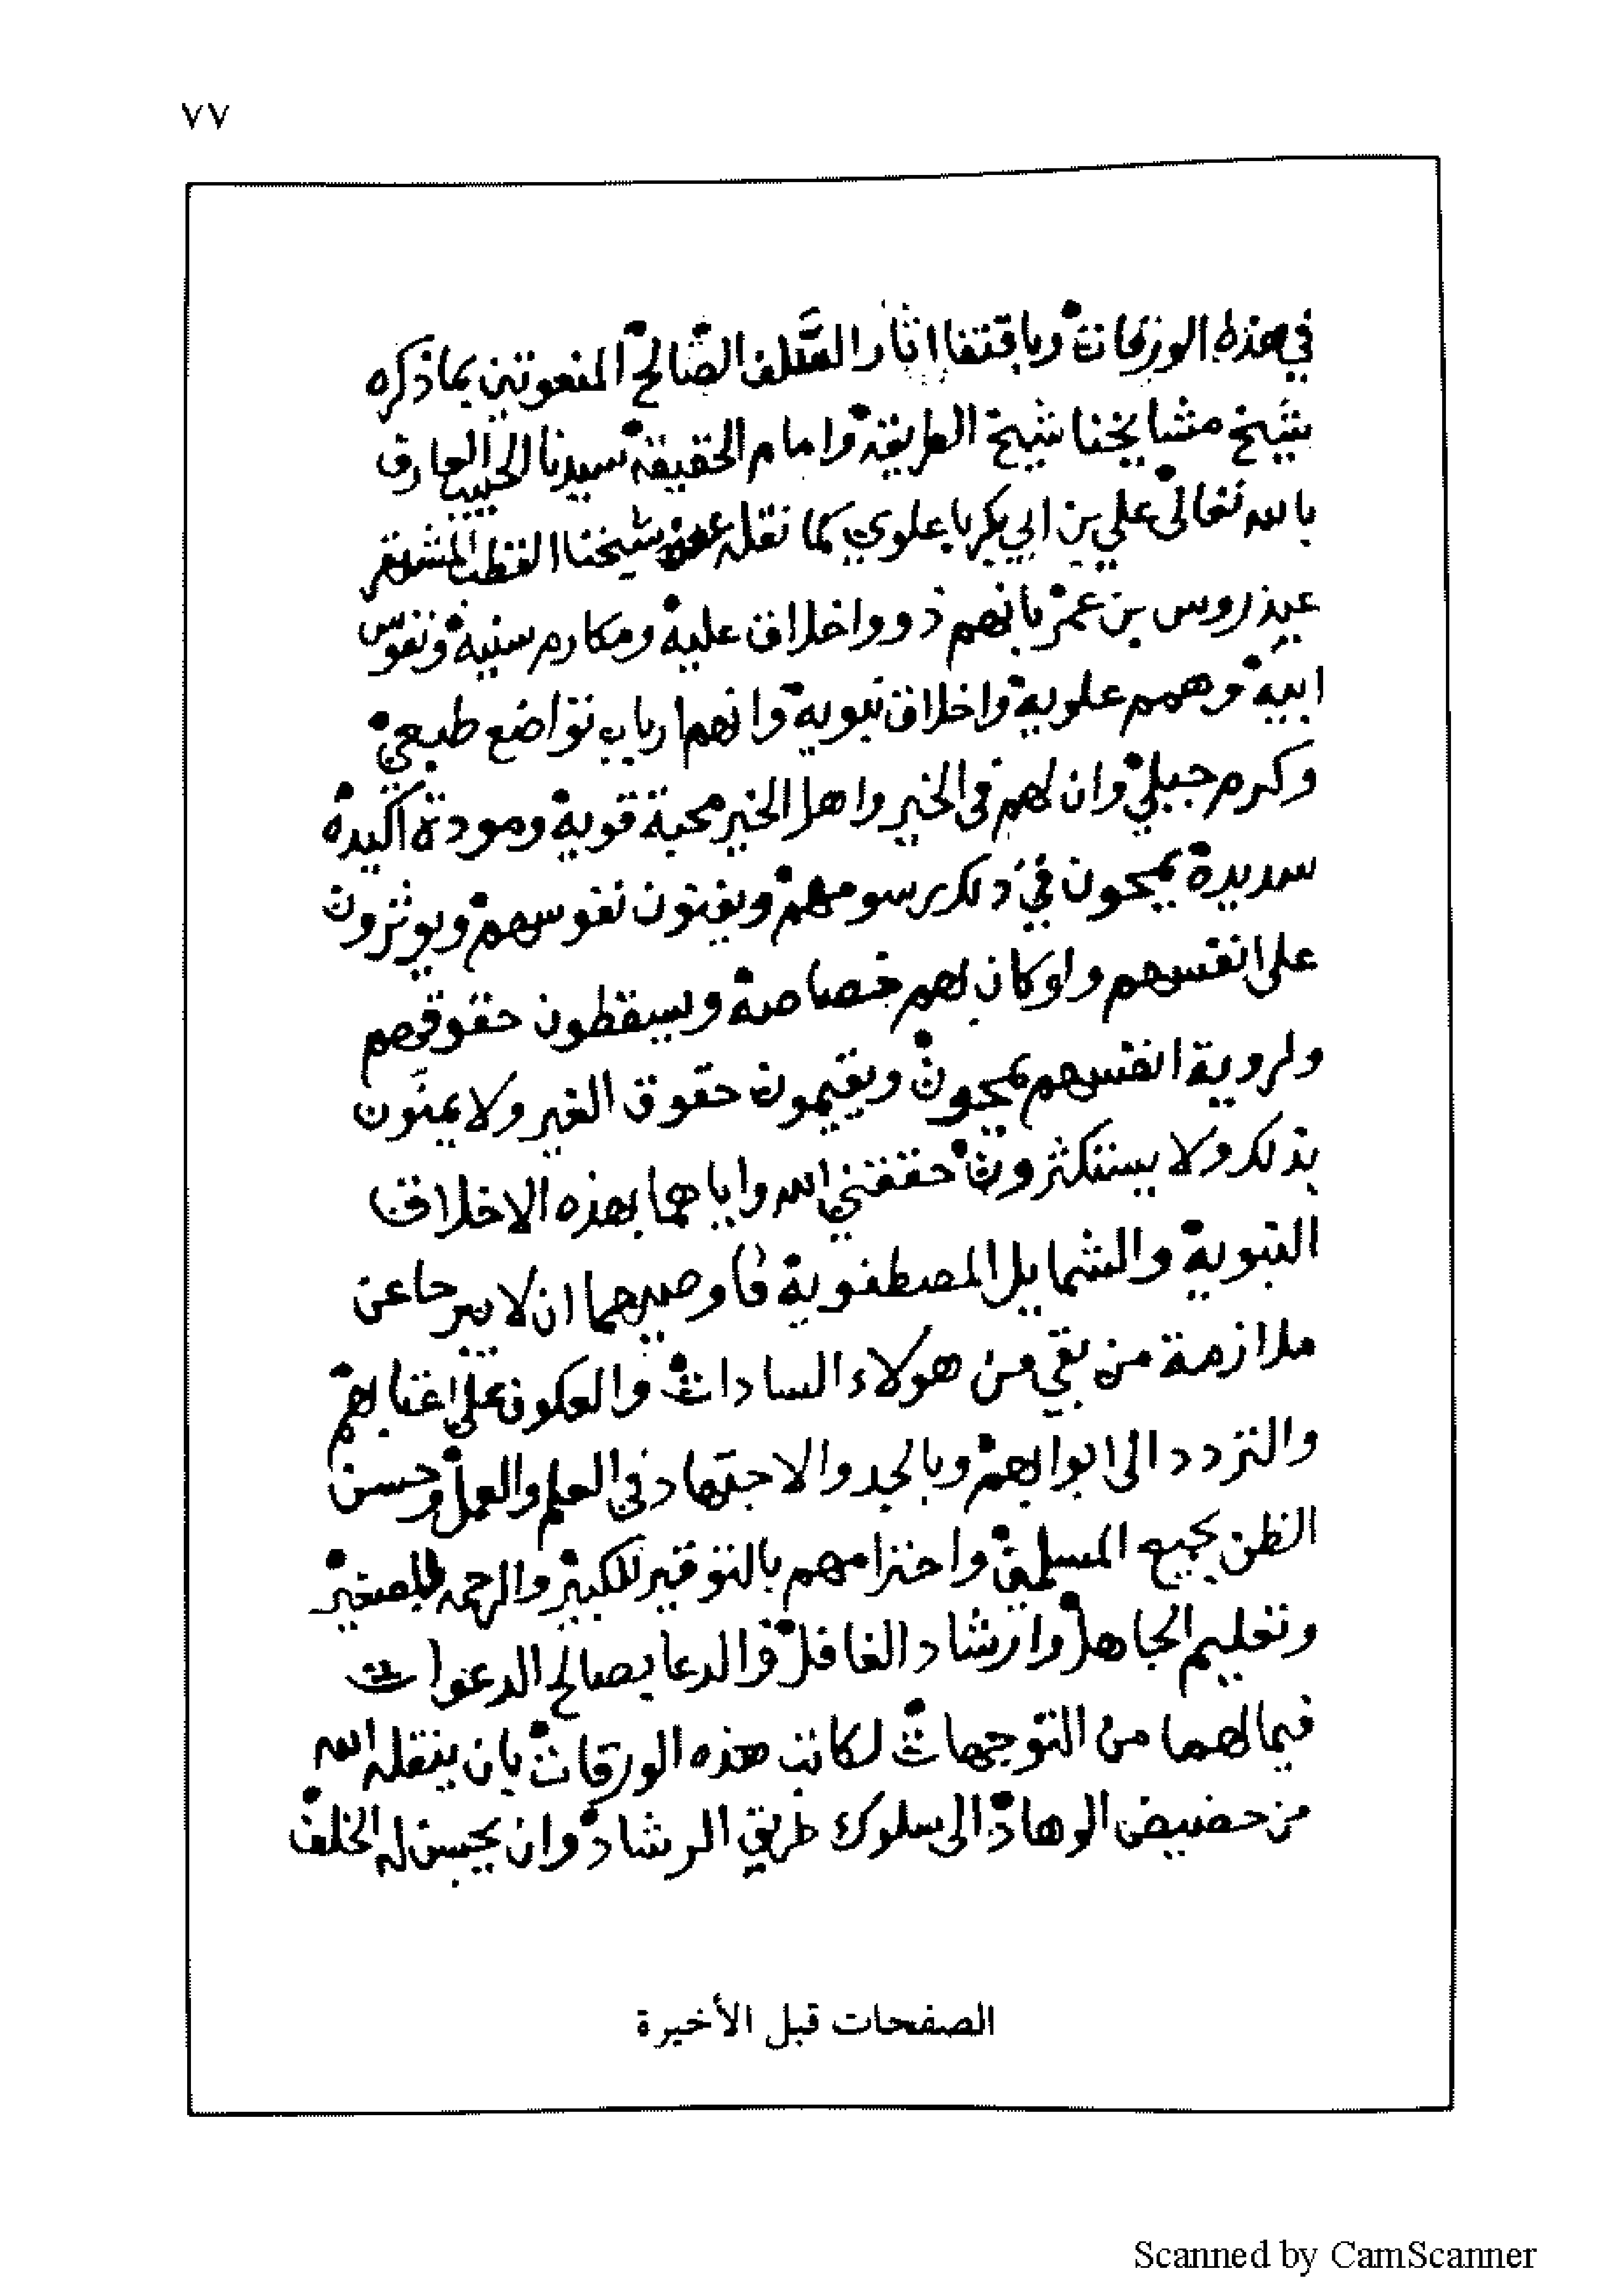 ٧٧
في هذه الورقات وباقتفا اثار السلف الصّالح المنعوتين بما ذكره
شيخ مشايخنا شيخ الطريقة وامام الحقيقة سيدنا الحبيب العارف
بالله تعالى علي بن ابي بكر باعلوي كما نقله عنه شيخنا القطب
عيدروس بن عمر بانهم ذوو اخلاق علية ومكارم سنية ونفوس
ابية وهمم علوية واخلاق نبوية وانهم ارباب تواضع طبيعي
وكرم جبلي وان لهم في الخير واهل الخير محبة قوية ومودة اكيدة
سديدة يمحون في ذلك رسومهم ويفنون نفوسهم ويوثرون
على انفسهم ولو كان بهم خصاصة ويسقطون حقوقهم
ولروية انفسهم يمحون ويقيمون حقوق الغير ولا يمنّون
بذلك ولا يستكثرون حققني الله واياهما بهذه الاخلاق
النبوية والشمايل المصطفوية فاوصيهما ان لا يبرحا عن
ملازمة من بقي من هولاء السادات والعكوف على اعتابهم
والتردد الى ابوابهم وبالجد والاجتهاد في العلم والعمل وحسن
الظن بجميع المسلمين واحترامهم بالتوقير للكبير والرحمه للصغير
وتعليم الجاهل وارشاد الغافل والدعا بصالح الدعوات
فيما لهما من التوجهات لكاتب هذه الورقات بان ينقله الله
من حضيض الوهاد الى سلوك طريق الرشاد وان يحسن له الخلف
الصفحات قبل الأخيرة
Scanned by CamScanner